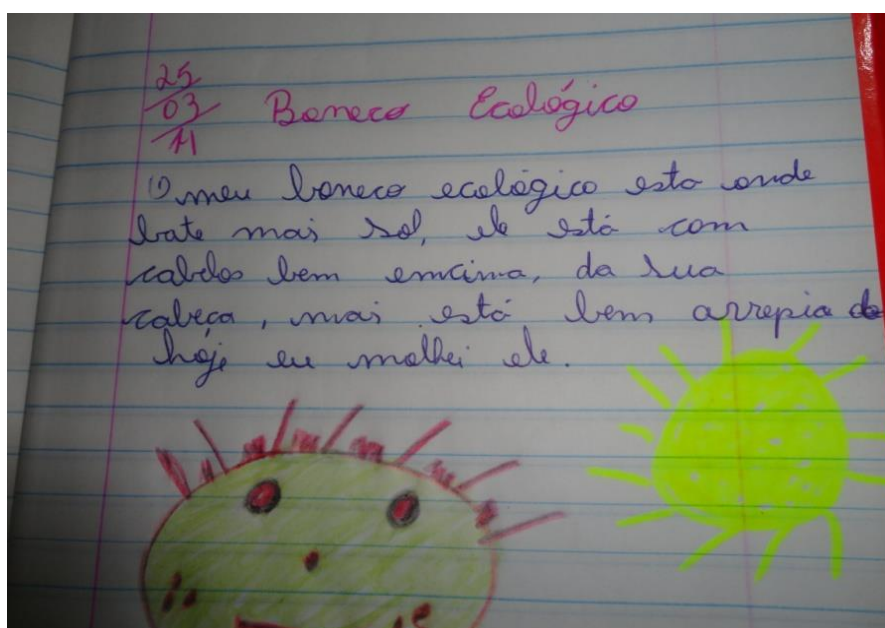 25
03 Boneco Ecológico
11
O meu boneco ecológico esta onde
bate mais sol, ele está com
cabelos bem emcima, da sua
cabeça, mais está bem arrepiado
hoje eu molhei ele.